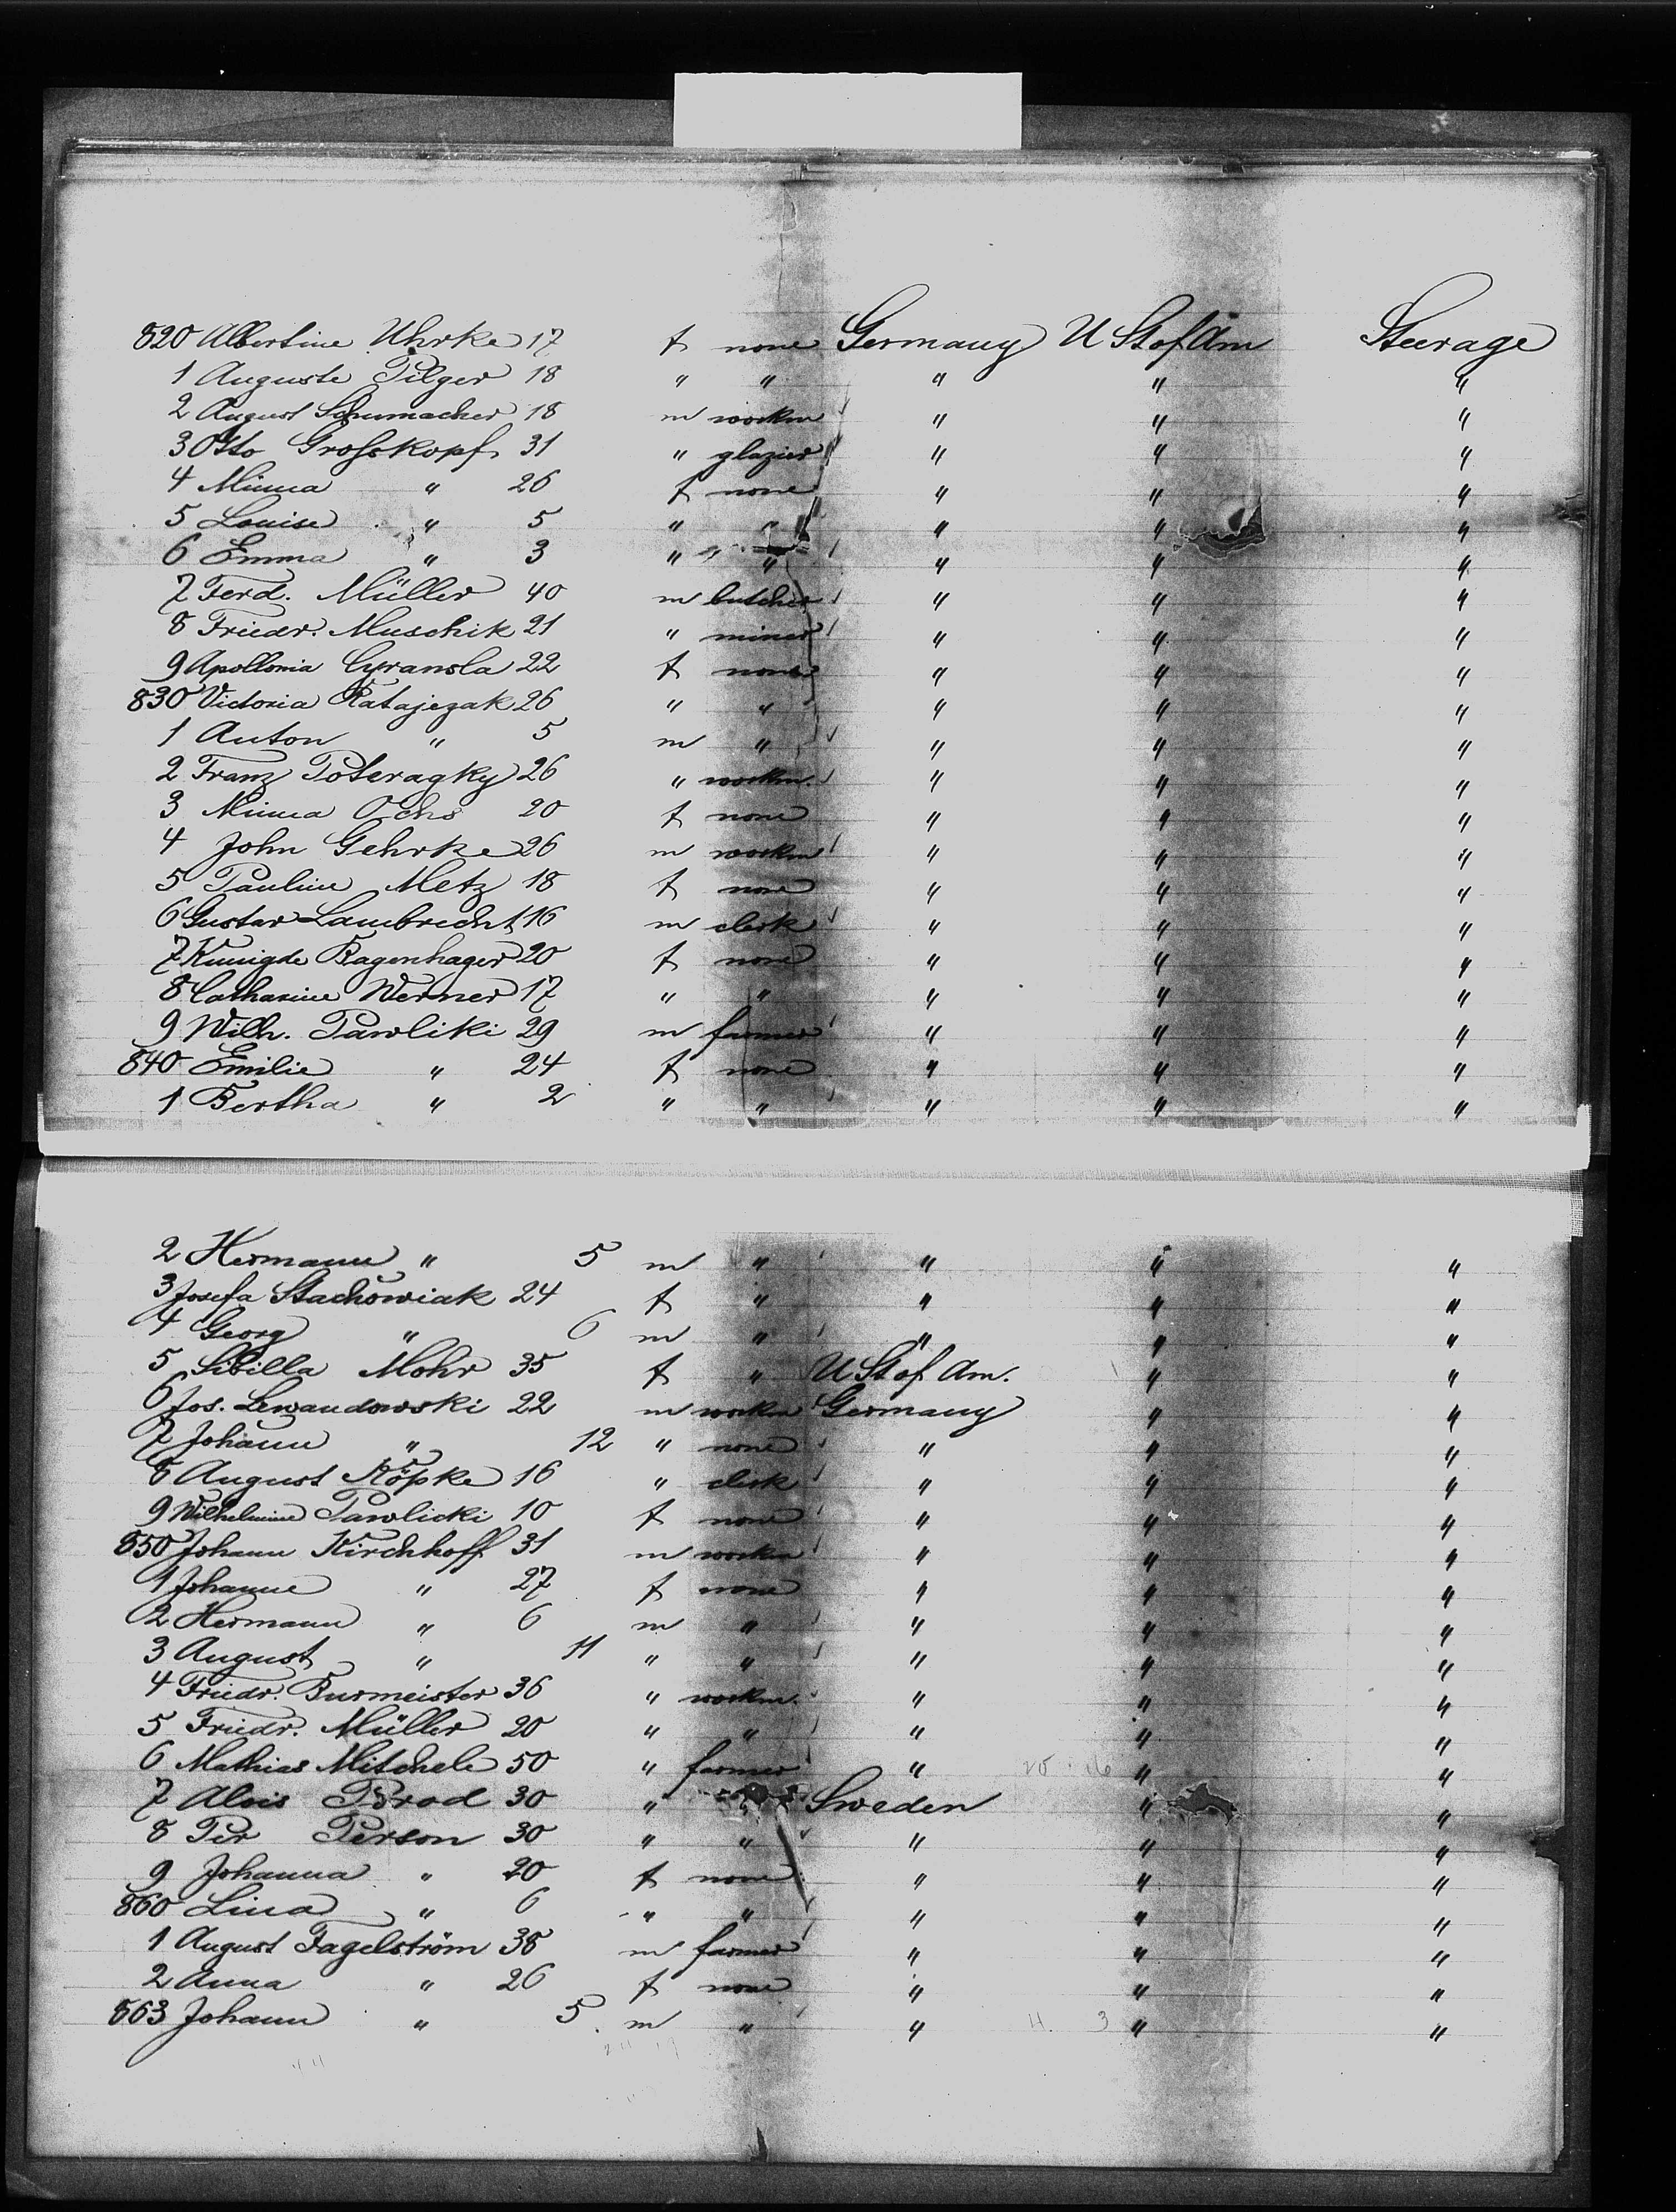 820 Albertine Uhrke 17 f none Germany U St of Am Steerage
1 Auguste Pilger 18 " " " " "
2 August Schumacher 18 m workm " " "
3 Otto Grosskopf 31 " glazier " " "
4 Minna " 26 f none " " "
5 Louise " 5 " " " " "
6 Emma " 3 " " " " "
7 Ferd. Müller 40 m butcher " " "
8 Friedr. Muschik 21 " miner " " "
9 Apollonia Cyransla 22 f none " " "
830 Victoria Ratajezak 26 " " " " "
1 Anton " 5 m " " " "
2 Franz Poteragky 26 " workm. " " "
3 Minna Ochs 20 f none " " "
4 John Gehrke 26 m workm " " "
5 Pauline Metz 18 f none " " "
6 Gustav Lambrecht 16 m clerk " " "
7 Kunigde Bagenhager 20 f none " " "
8 Catharine Werner 17 " " " " "
9 Wilh. Pawliki 29 m farmer " " "
840 Emilie " 24 f none " " "
1 Bertha " 2 " " " " "
2 Hermann " 5 m " " " "
3 Josefa Stachowiak 24 f " " " "
4 Georg " 6 m " " " "
5 Sibilla Mohr 35 f " U St of Am. " "
6 Jos. Lewandowski 22 m workm Germany " "
7 Johann " 12 " none " " "
8 August Köpke 16 " clerk " " "
9 Wilhelmine Pawlicki 10 f none " " "
850 Johann Kirchhoff 31 m workm " " "
1 Johanne " 27 f none " " "
2 Hermann " 6 m " " " "
3 August " 11 " " " " "
4 Friedr. Burmeister 36 " workm. " " "
5 Friedr. Müller 20 " " " " "
6 Mathias Mitchele 50 " farmer " " "
7 Alois Brod 30 " " Sweden " "
8 Per Person 30 " " " " "
9 Johanna " 20 f none " " "
860 Lina " 6 " " " " "
1 August Fagelström 38 m farmer " " "
2 Anna " 26 f none " " "
863 Johann " 5 m " " " "